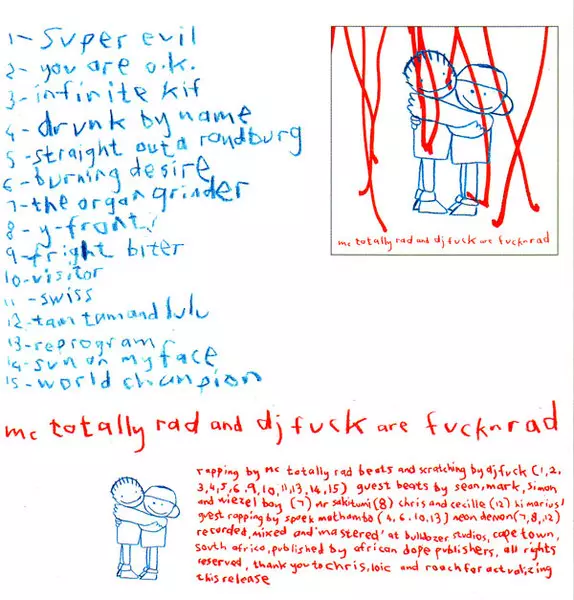 1- Super evil
2- you are o.k.
3- infinite kif
4- drunk by name
5-straight outa randburg
6-burning desire
7-the organ grinder
8- y-fronts
9-fright biter
10-visitor
11-swiss
12-tam tam and lulu
13-reprogram
14-sun on my face
15-world champion
mc totally rad and dj fuck are fucknrad
mc totally rad and dj fuck are fucknrad
rapping by mc totally rad beats and scratching by dj fuck (1,2,
3,4,5,6,9,10,11,13,14,15) guest beats by sean, mark, simon
and wiezel boy (7) mr sakitumi (8) chris and cecille (12) hi marius!
guest rapping by spoek mathambo (4,6,10,13) neon demon (7,8,12)
recorded, mixed and 'mastered' at bulldozer studios, cape town,
south africa, published by african dope publishers, all rights
reserved, thank you to chris, loic and roach for actualizing
this release